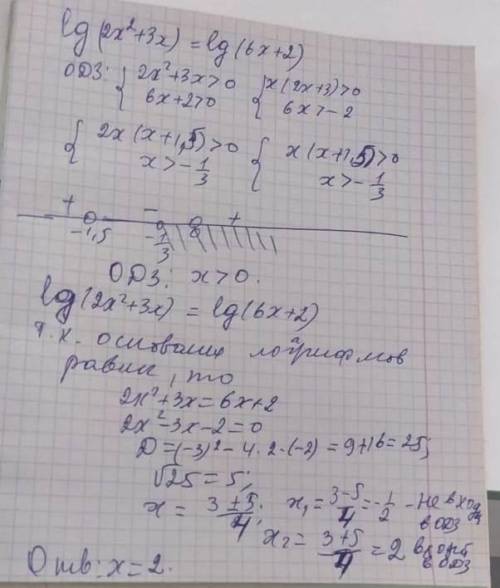 lg(2x²+3x)=lg(6x+2)
ОДЗ: { 2x²+3x>0 { x(2x+3)>0
6x+2>0 6x>-2
{ 2x(x+1,5)>0 { x(x+1,5)>0
x>-1/3 x>-1/3
+ - +
-1,5 -1/3 0
ОДЗ: x>0.
lg(2x²+3x)=lg(6x+2)
т.к. основания логрифмов
равны, то
2x²+3x=6x+2
2x²-3x-2=0
D=(-3)²-4·2·(-2)=9+16=25;
√25=5;
x=(3±5)/4; x₁=(3-5)/4=-1/2 - не входит
в ОДЗ
x₂=(3+5)/4=2 входит
в ОДЗ
Отв: x=2.